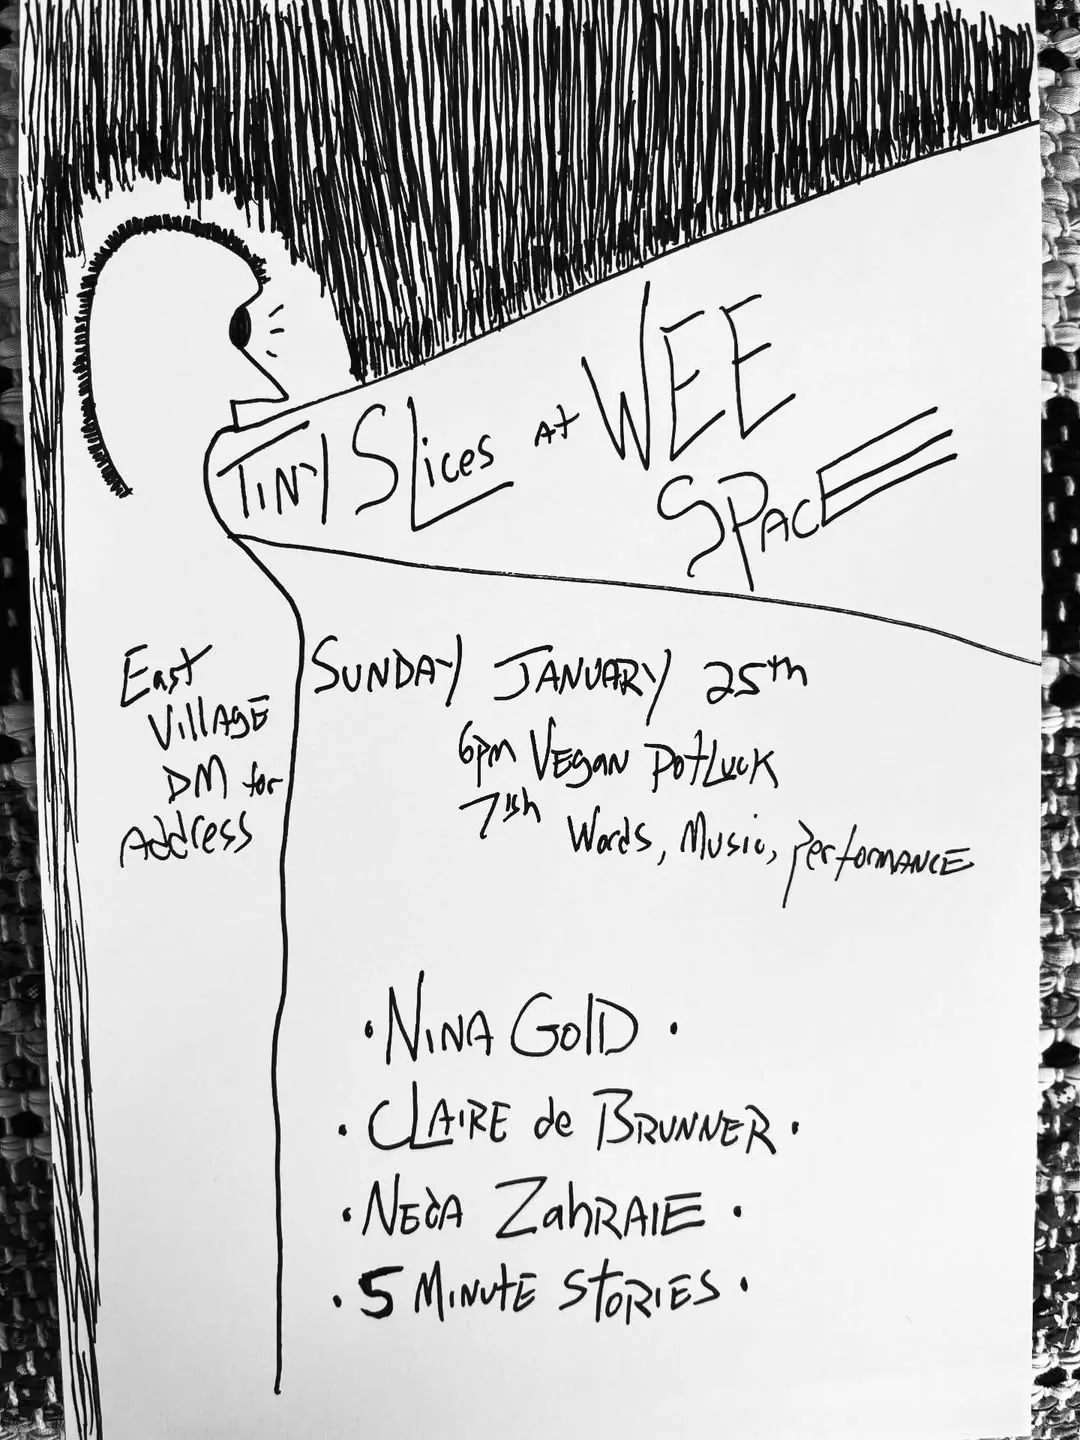 TINY SLices AT WEE
SPACE
East
VillAGE
DM for
Address
SUNDAY JANUARY 25th
6pm VEGAN PotLucK
7ish Words, Music, PerformANCE
• NINA GOlD •
• CLAIRE de BRUNNER •
• NEdA ZahRAIE •
• 5 MINUTE STORIES •